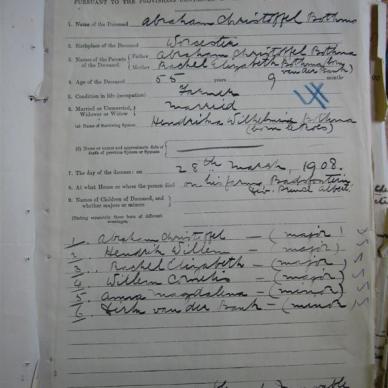 PURSUANT TO THE PROVISIONS
1. Name of the Deceased Abraham Christoffel Bothma
2. Birthplace of the Deceased Worcester
3. Names of the Parents of the Deceased { Father Abraham Christoffel Bothma
Mother Rachel Elizabeth Bothma (born van der Bank)
4. Age of the Deceased 55 years 9 months
5. Condition in life (occupation) Farmer
6. Married or Unmarried, Widower or Widow Married
(a) Name of Surviving Spouse Hendrika Wilhelmina Bothma
(born le Roes)
(b) Name or names and approximate date of death of previous Spouse or Spouses
7. The day of the decease: on 28th March, 1908.
8. At what House or where the person died on his farm,
9. Names of Children of Deceased, and whether majors or minors
(Stating separately those born of different marriages.)
1. Abraham Christoffel – (major)
2. Hendrik Willem – (major)
3. Rachel Elizabeth – (major)
4. Willem Cornelis – (major)
5. Anna Magdalena – (minor)
6. Dirk van der Bank – (minor)